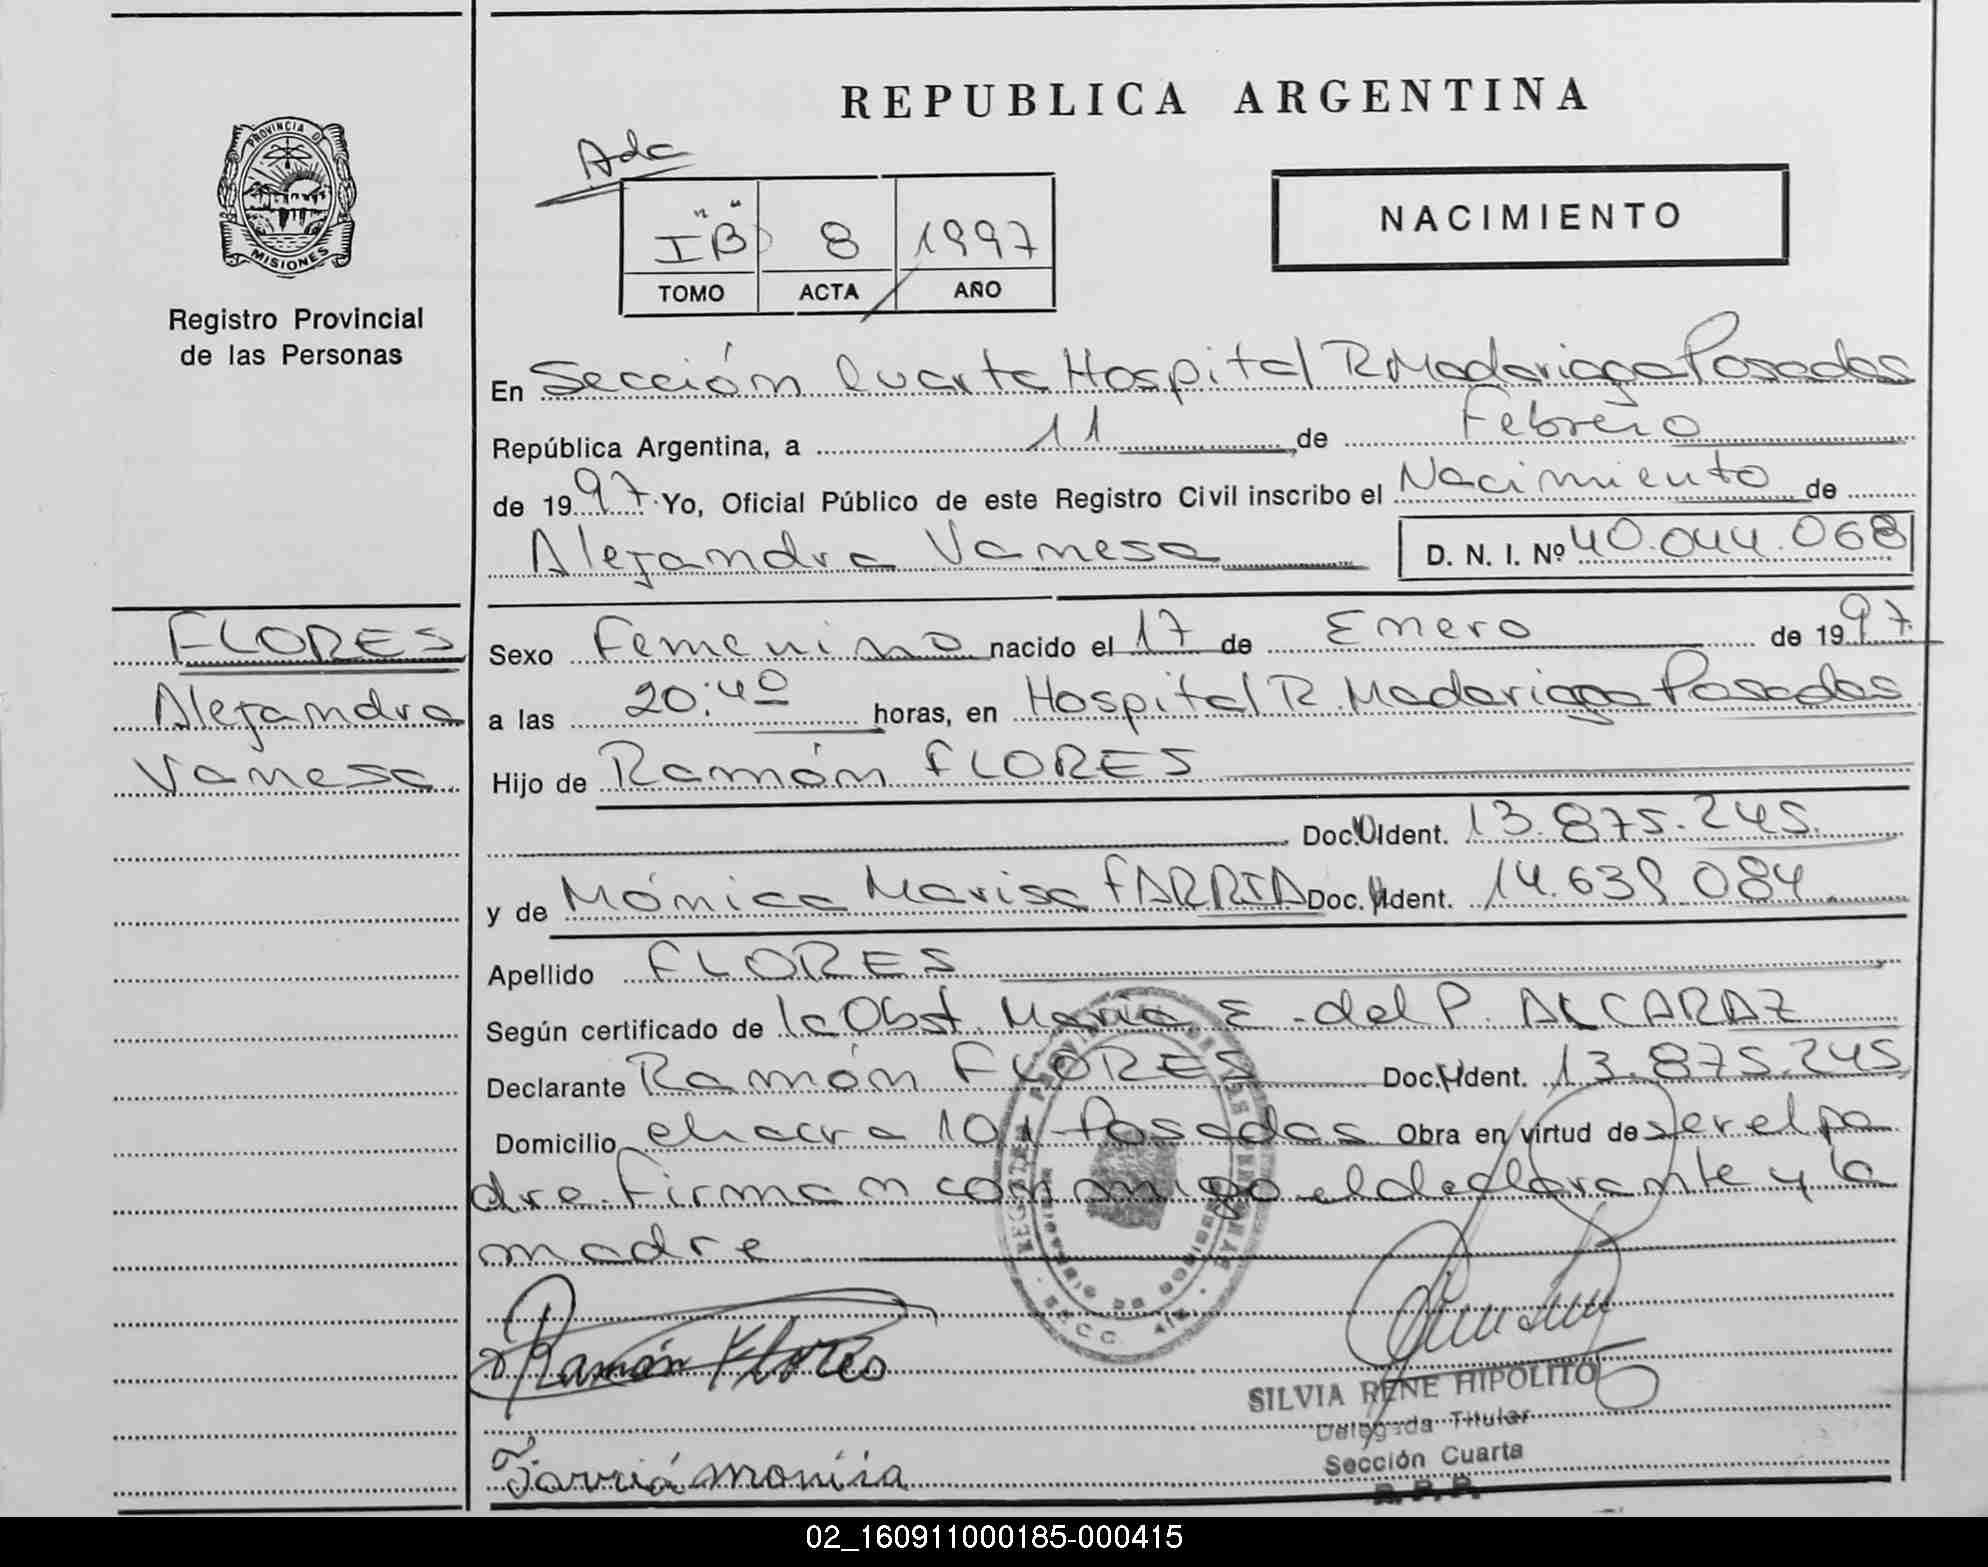 REPUBLICA ARGENTINA
Adc
PROVINCIA D
MISIONES
Registro Provincial
de las Personas
"IB" 8 1997
TOMO ACTA AÑO
NACIMIENTO
En Sección Cuarta Hospital R Madariaga Posadas
República Argentina, a 11 de Febrero
de 1997. Yo, Oficial Público de este Registro Civil inscribo el Nacimiento de
Alejandra Vanesa D. N. I. Nº 40.044.068
FLORES
Alejandra
Vanesa
Sexo Femenino nacido el 17 de Enero de 1997.
a las 20:40 horas, en Hospital R. Madariaga Posadas
Hijo de Ramón FLORES
Doc. Ident. 13.875.245.
y de Mónica Marisa FARRIA Doc. Ident. 14.639.084
Apellido FLORES
Según certificado de la Obst. María E. del P. ALCARAZ
Declarante Ramón FLORES Doc. Ident. 13.875.245
Domicilio chacra 101 Posadas Obra en virtud de ser el pa
dre. Firman conmigo el declarante y la
madre
Ramón Flores
SILVIA RENE HIPOLITO
Delegada Titular
Sección Cuarta
R. P. P.
Farriá monica
02_160911000185-000415